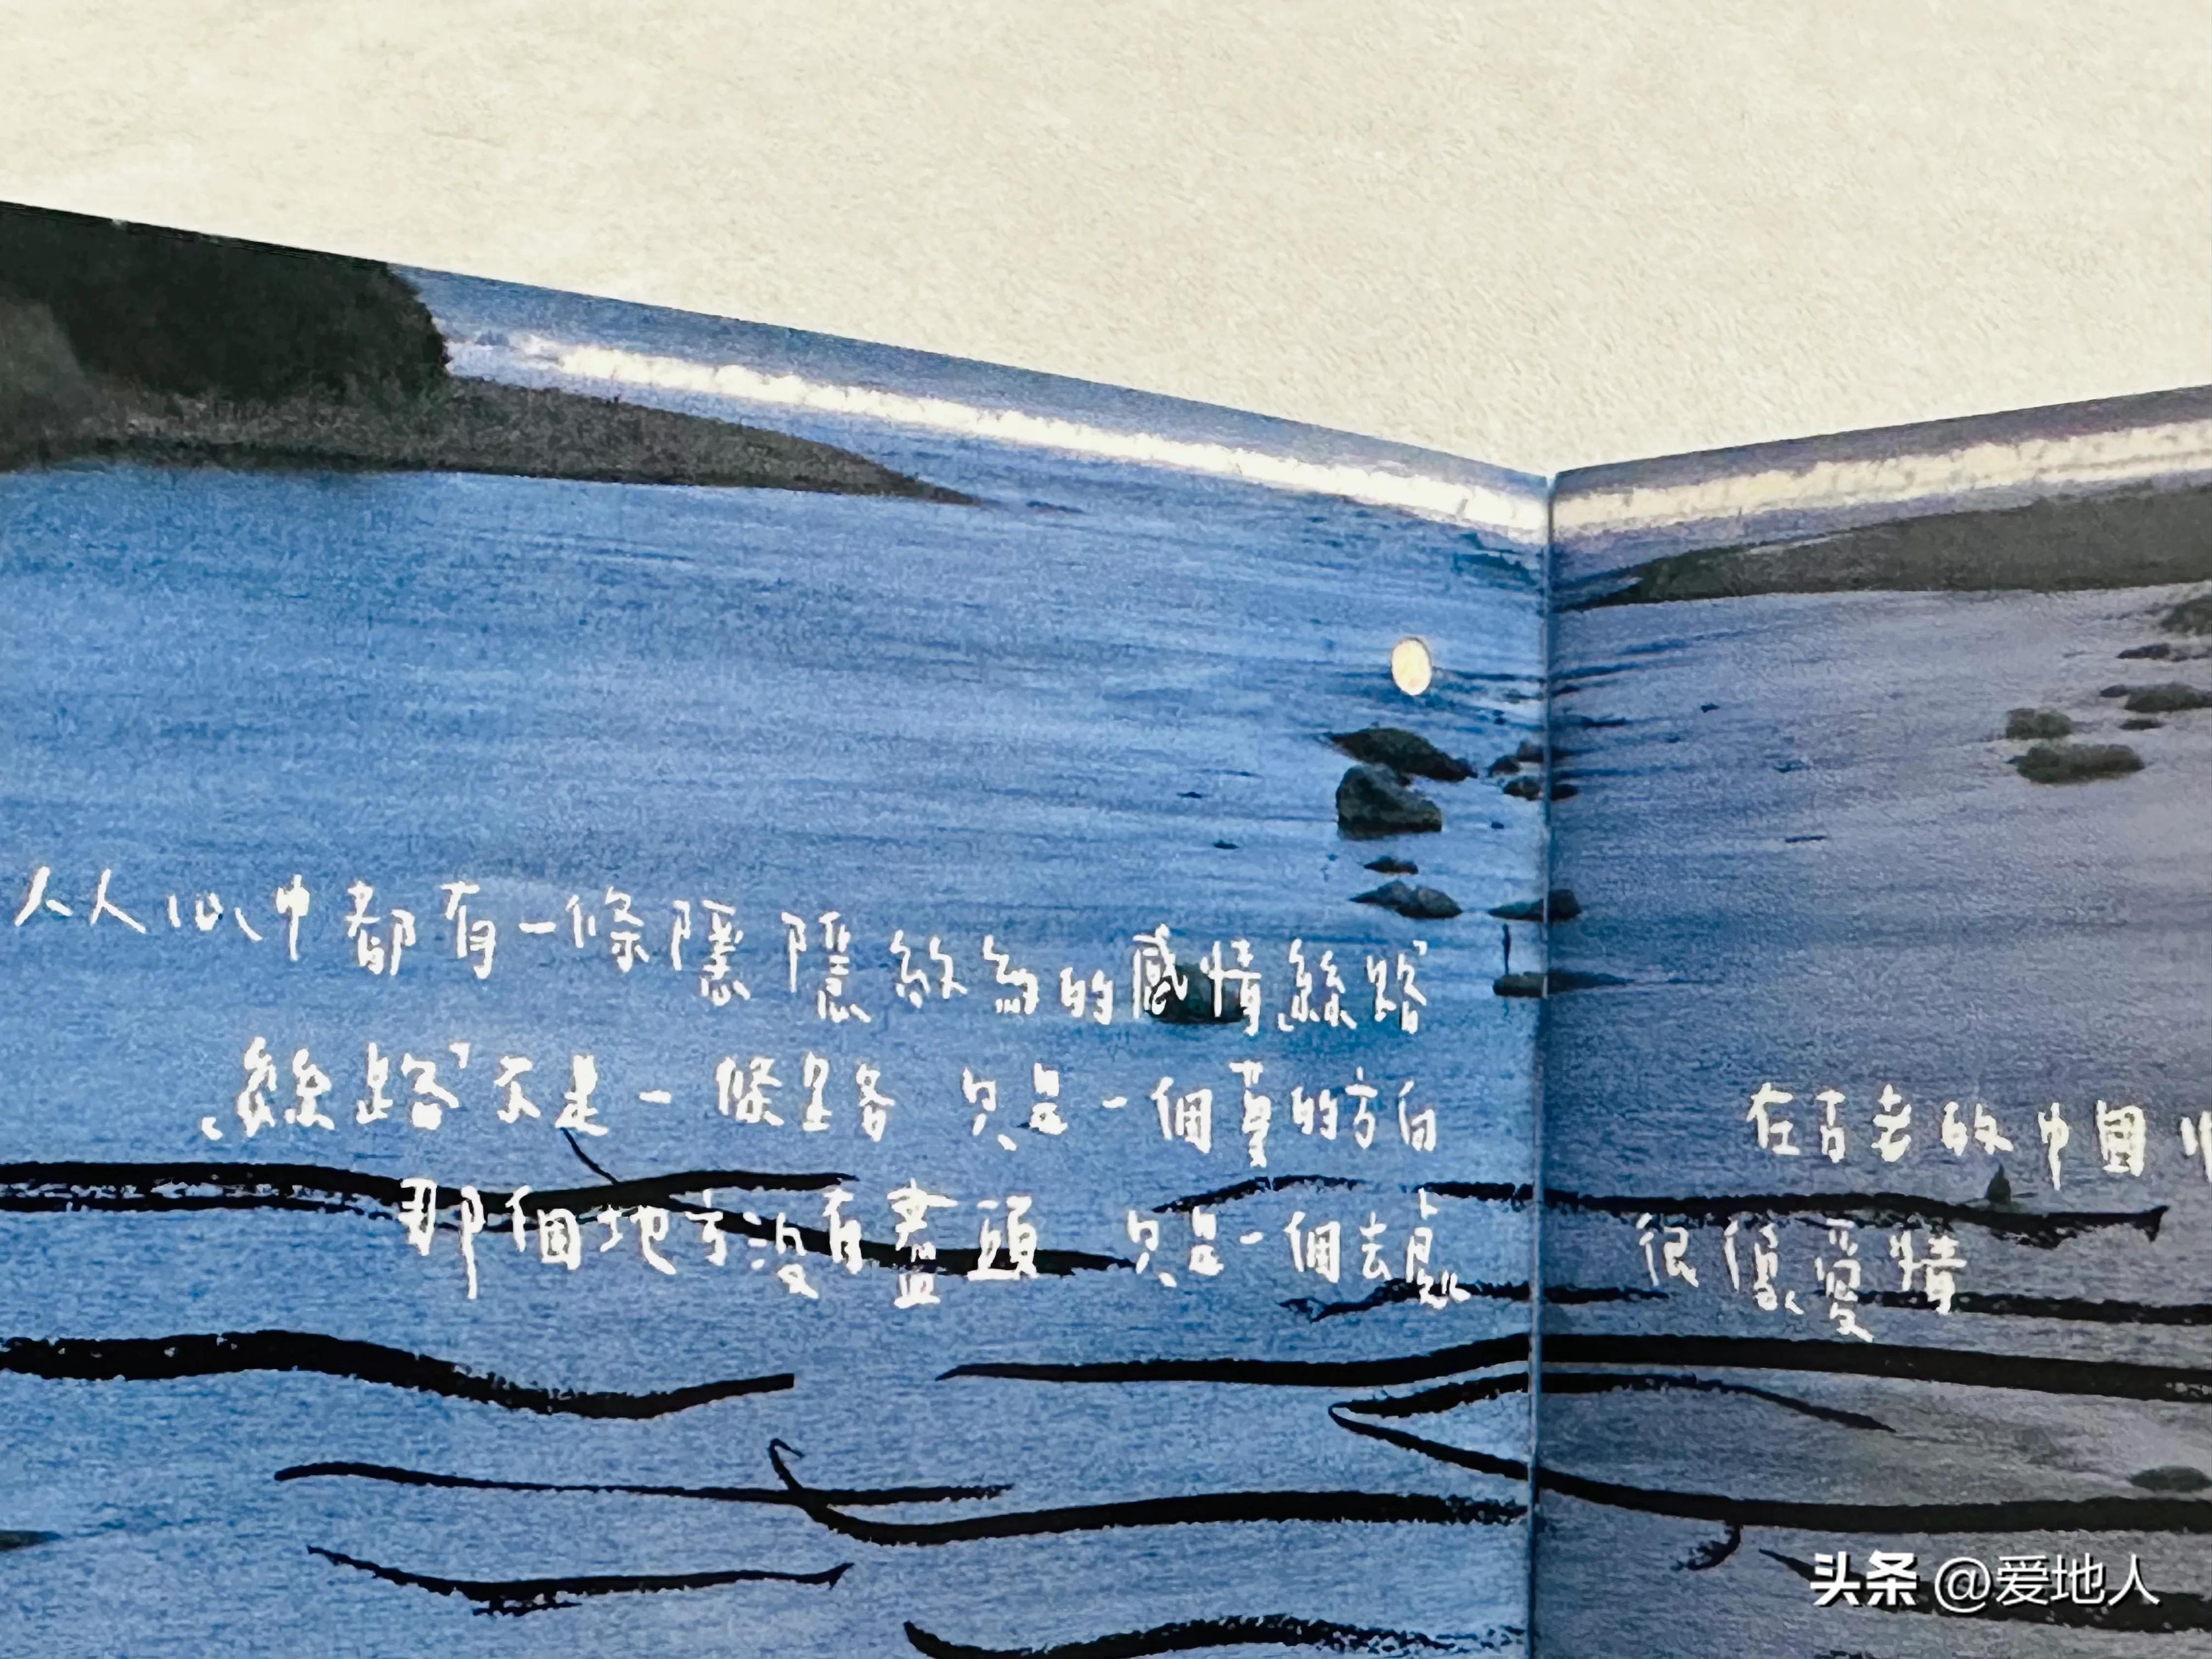 人人心中都有一條隱隱約約的感情「絲路」
「絲路」不是一條路 只是一個夢的方向
那個地方沒有盡頭 只是一個去處
在古老的中國
很像愛情
头条 @爱地人